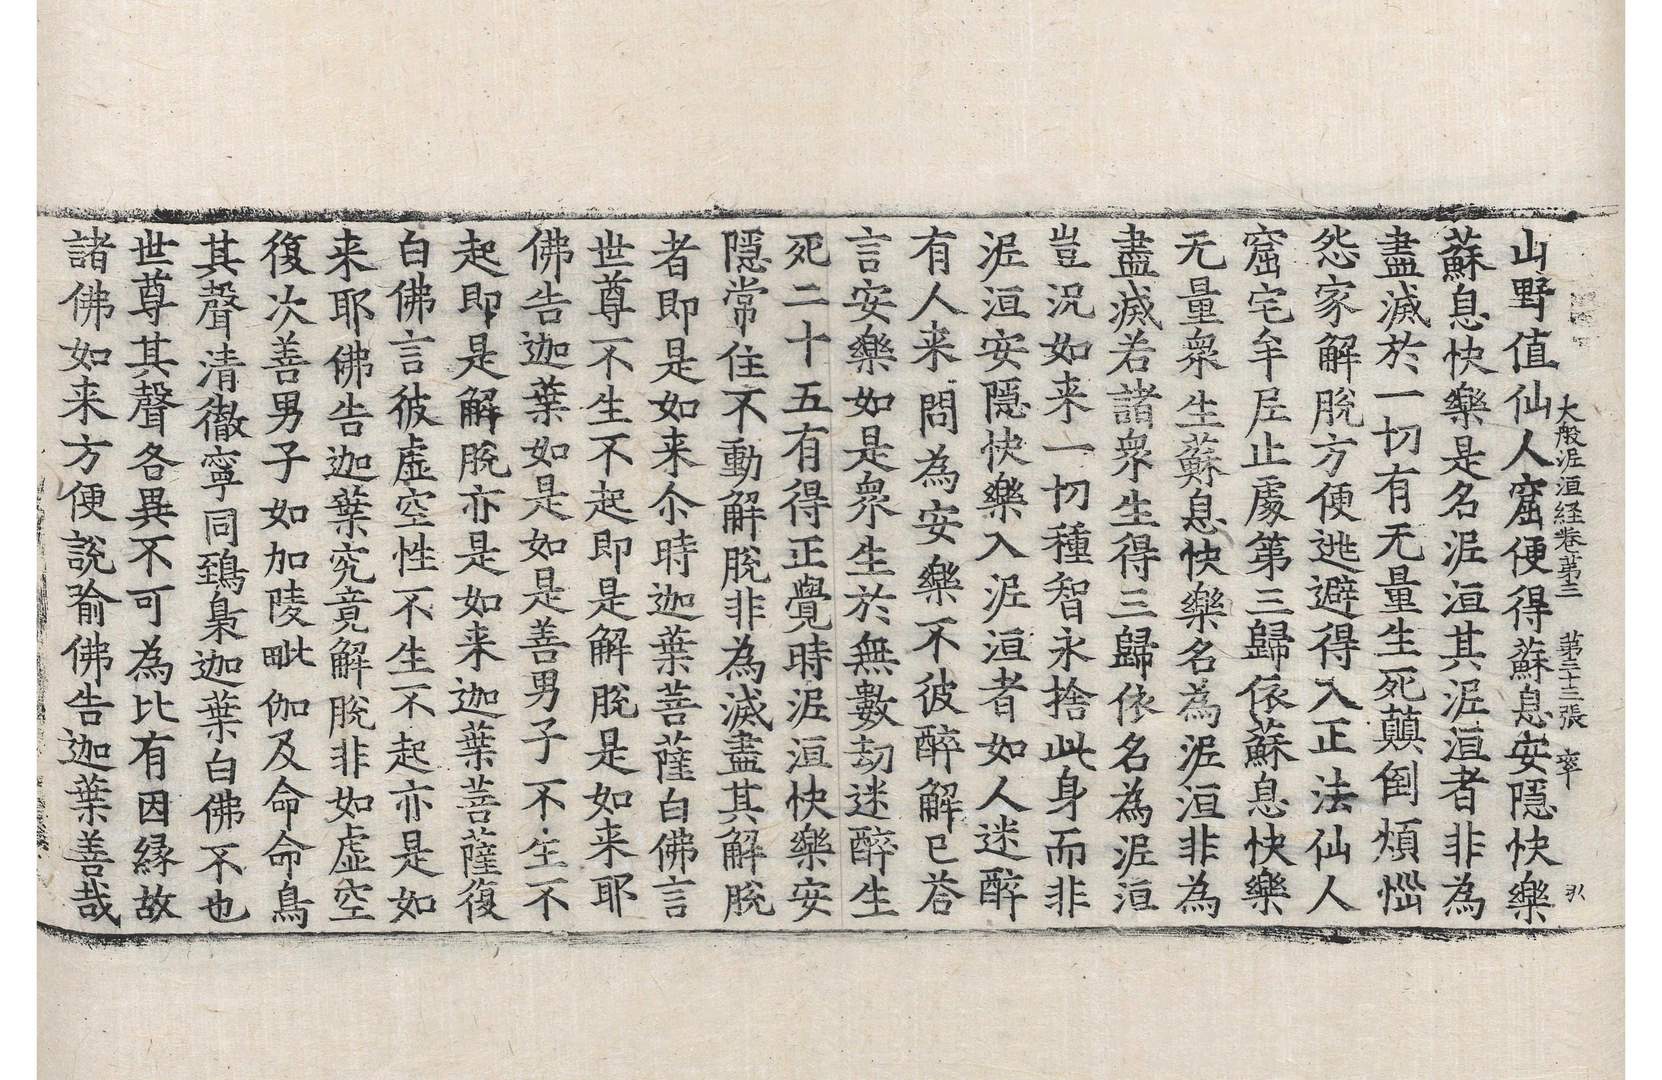 大般泥洹経卷第三 第三十三張 率
山野值仙人窟便得蘇息安隱快樂
蘇息快樂是名泥洹其泥洹者非為
盡滅於一切有无量生死顛倒煩惱
怨家解脫方便逃避得入正法仙人
窟宅牟𡰱止處第三歸依蘇息快樂
无量衆生蘇息快樂名為泥洹非為
盡滅若諸衆生得三歸依名為泥洹
豈況如来一切種智永捨此身而非
泥洹安隱快樂入泥洹者如人迷醉
有人来問為安樂不彼醉解已荅
言安樂如是衆生於無數劫迷醉生
死二十五有得正覺時泥洹快樂安
隱常住不動解脫非為滅盡其解脫
者即是如来尒時迦葉菩薩白佛言
世尊不生不起即是解脫是如来耶
佛告迦葉如是如是善男子不生不
起即是解脫亦是如来迦葉菩薩復
白佛言彼虛空性不生不起亦是如
来耶佛告迦葉究竟解脫非如虛空
復次善男子如加陵毗伽及命命鳥
其聲清徹寧同鵄梟迦葉白佛不也
世尊其聲各異不可為比有因縁故
諸佛如来方便說喻佛告迦葉善哉